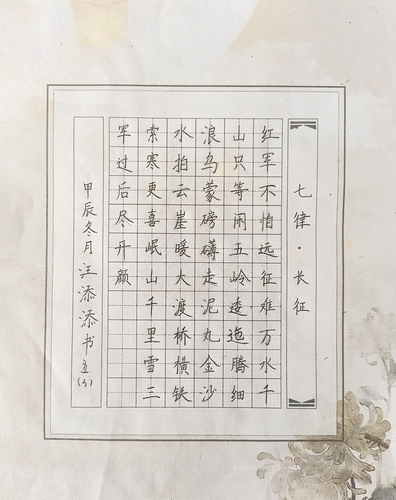 七律·长征
红军不怕远征难万水千
山只等闲五岭逶迤腾细
浪乌蒙磅礴走泥丸金沙
水拍云崖暖大渡桥横铁
索寒更喜岷山千里雪三
军过后尽开颜
甲辰冬月汪添添书五